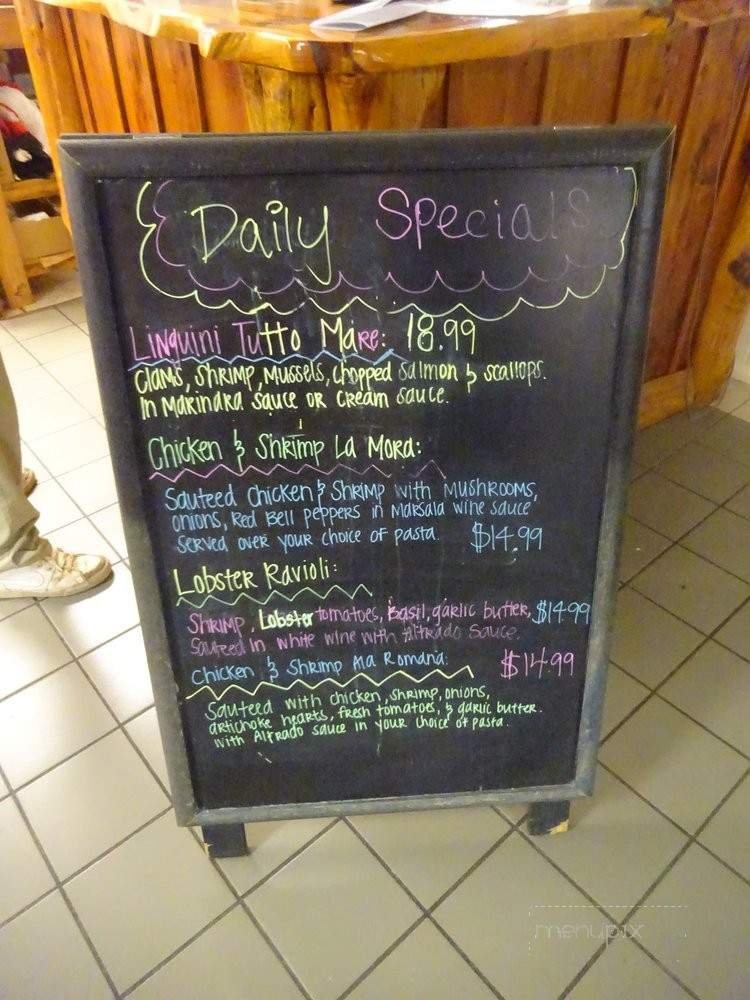 Daily Specials
Linquini Tutto Mare: 18.99
Clams, Shrimp, Mussels, chopped Salmon & scallops.
In Marinara sauce or cream sauce.
Chicken & Shrimp La Mora:
Sauteed chicken & Shrimp with mushrooms,
onions, Red Bell peppers in Marsala wine sauce
served over your choice of pasta. $14.99
Lobster Ravioli:
Shrimp, Lobster tomatoes, Basil, garlic butter, $14.99
Sauteed in white wine with Alfrado Sauce.
Chicken & Shrimp Ala Romana: $14.99
Sauteed with chicken, shrimp, onions,
artichoke hearts, fresh tomatoes, & garlic butter.
with Alfrado sauce in your choice of pasta.
menupix